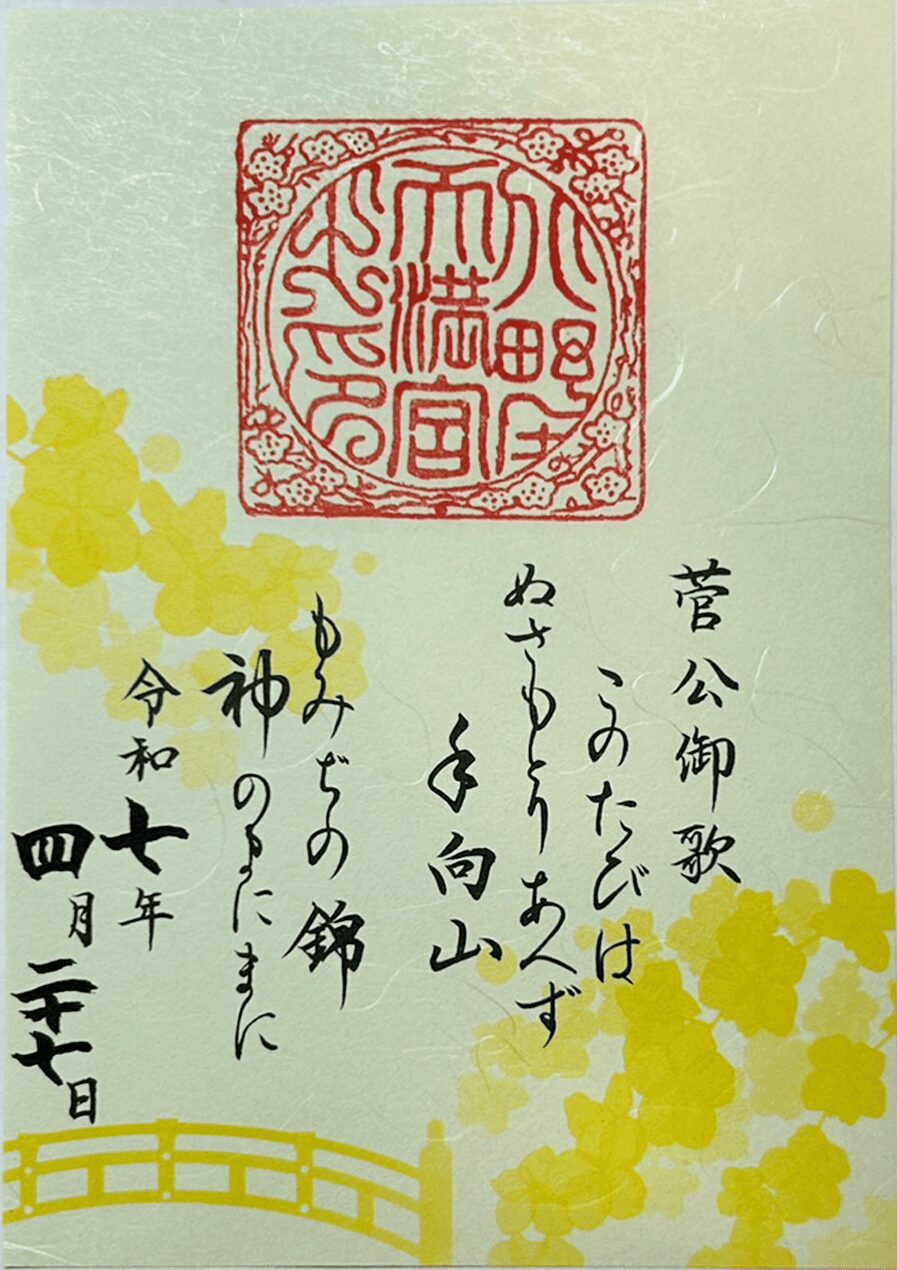 天満宮
之印
菅公御歌
このたびは
ぬさもとりあへず
手向山
もみぢの錦
神のまにまに
令和七年
四月二十七日